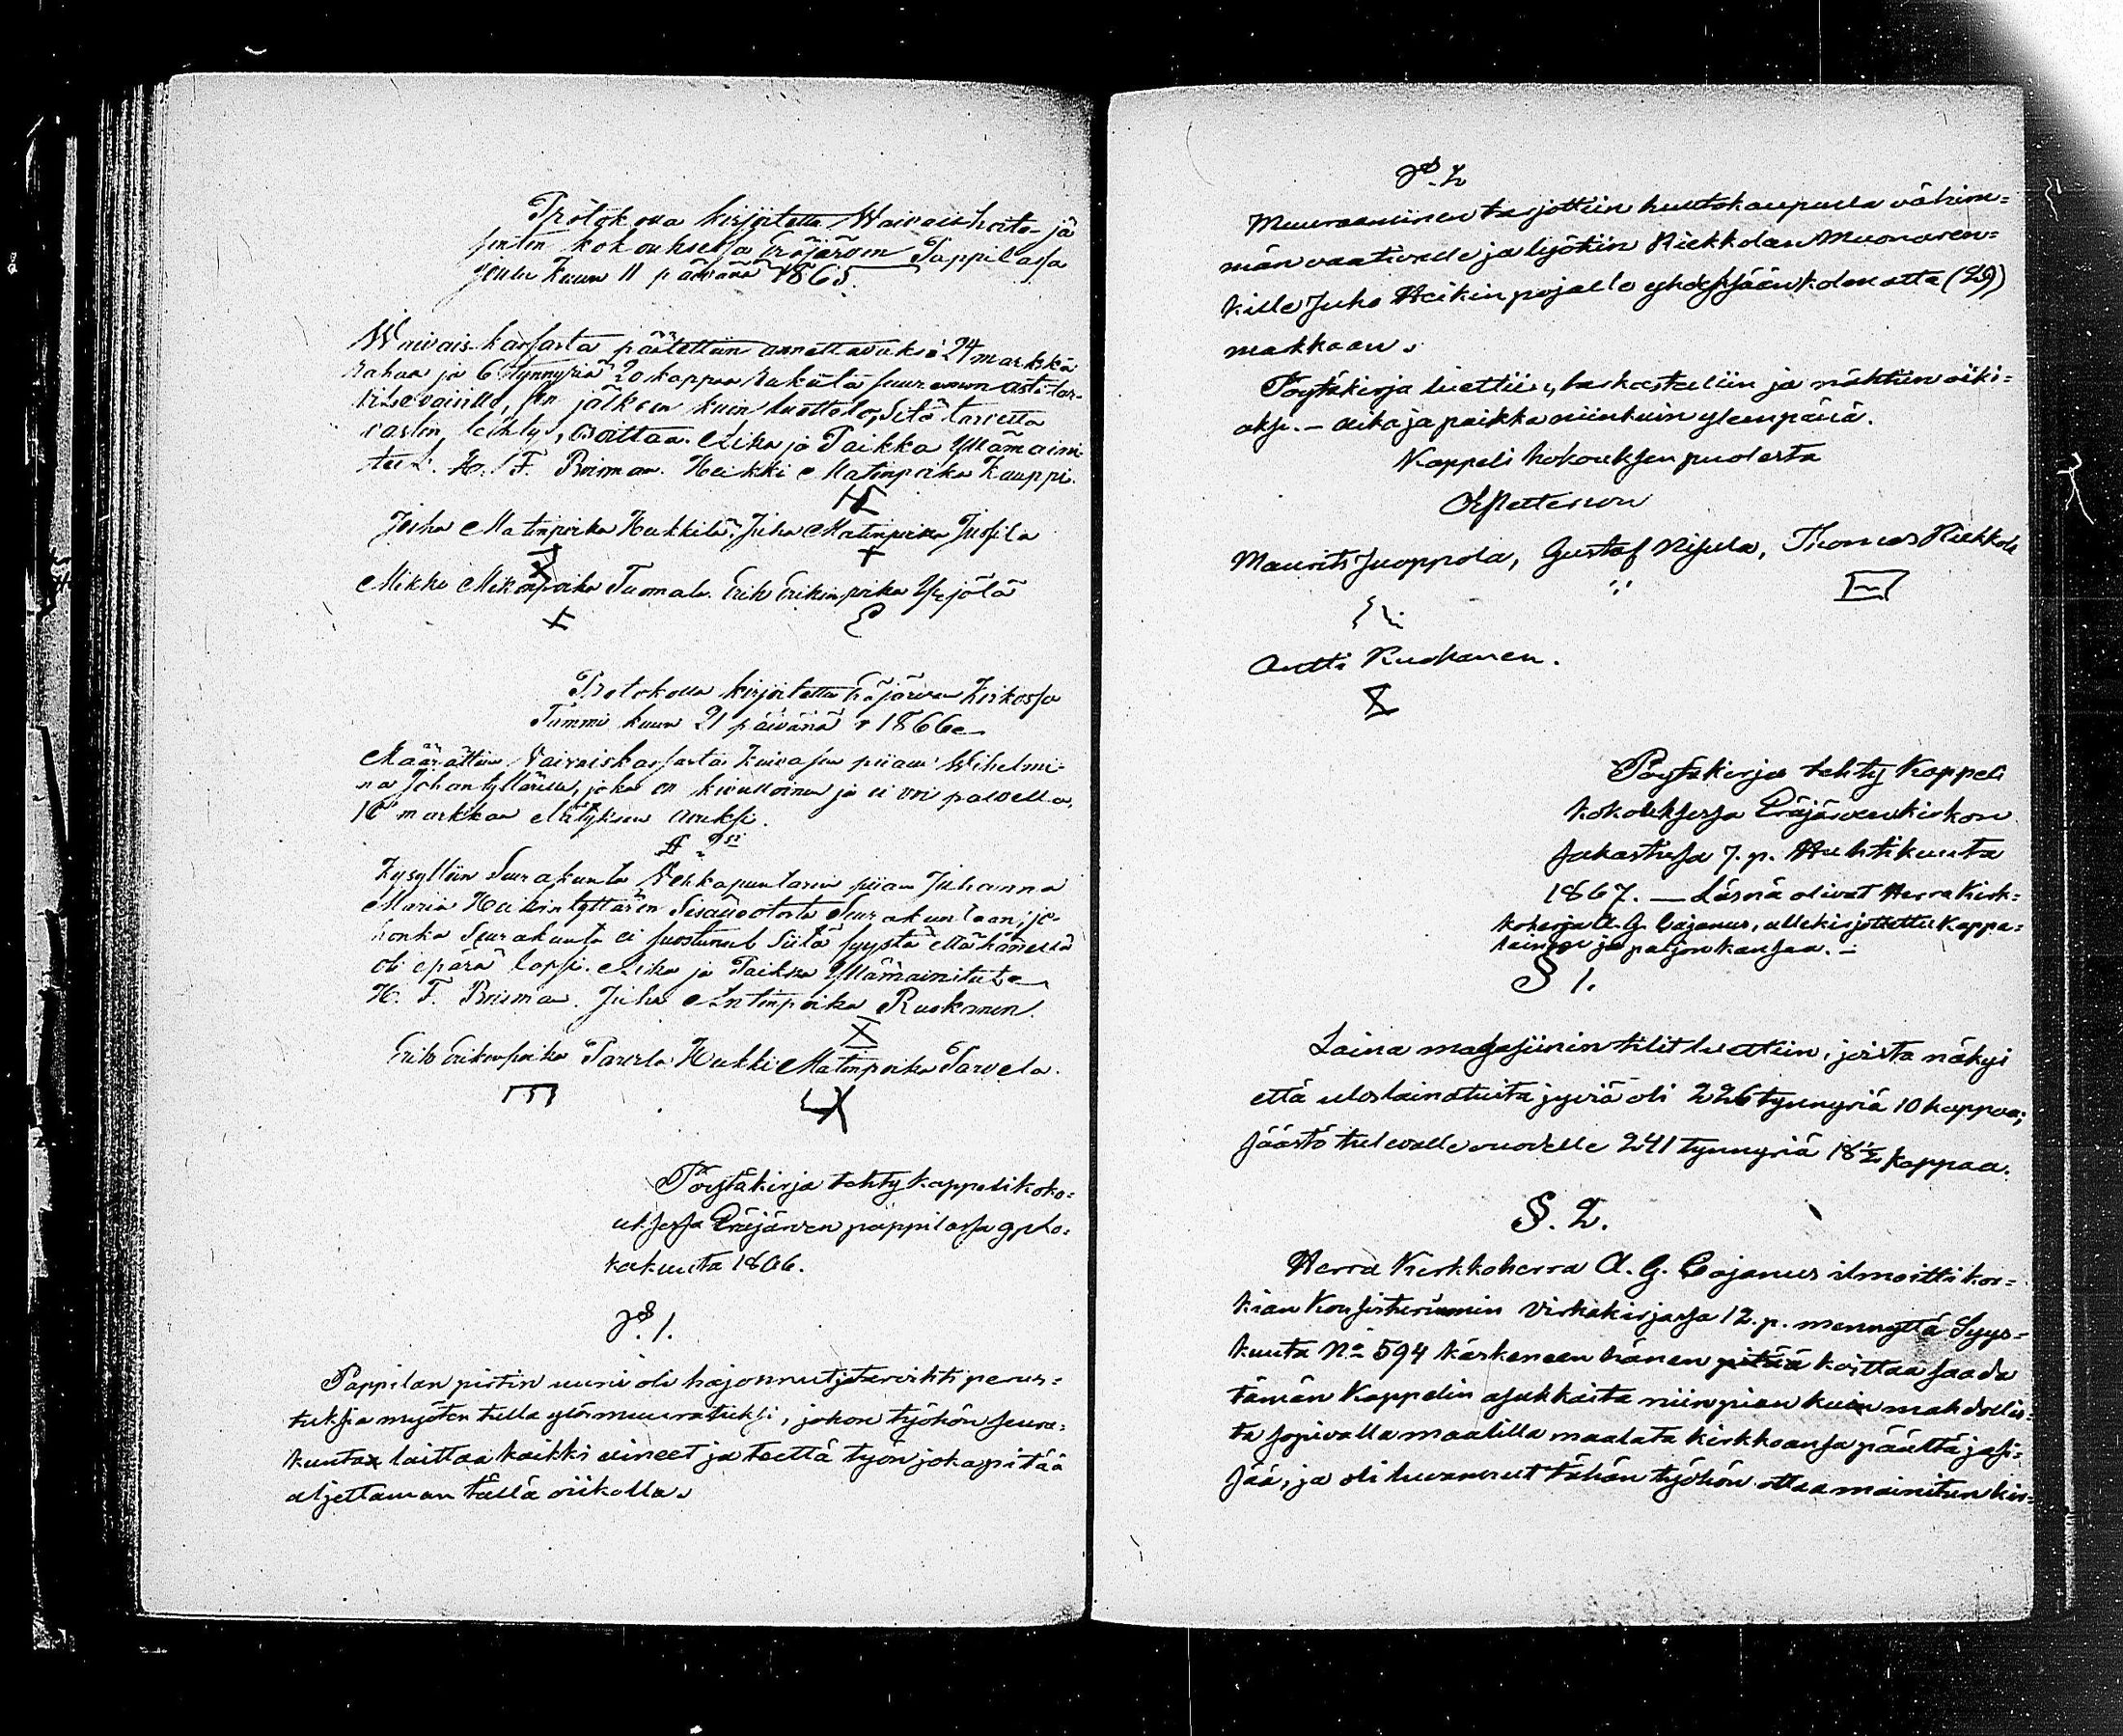 Protokolla kirjoitettu Waivaishoito jä
senten kokouksessa Eräjärven Pappilassa
Joulu Kuun 11 päivänä 1865.
Waivais kassasta päätettiin annettavaksi 24 markkaa
rahaa ja 6 tynnyriä 20 kappaa Rukiita suuremman asti tar-
vitsevaisille, sen jälkeen kuin luettelo, sitä tarvetta
varten tehty, osoittaa. Aika ja Paikka Yllämaini-
tut. H. F. Brisman. Heikki Matinpoika Kauppi.
Juha Matinpoika Hukkila. Juha Matinpoika Jussila
Mikko Mikonpoika Tuomala. Erik Erikinpoika Yrjölä
Protokolla kirjoitettu Eräjärven Kirkossa
Tammi kuun 21 päivänä 1866
Määrättiin Vaivaiskassasta piian Wilhelmi-
na Johantyttärelle, joka on kivulloinen ja ei voi palvella,
16 markkaa elatuksen avuksi.
§ 2si
Kysyttiin Seurakunta piian Juhanna
Maria Heikintyttären Sisäänotosta Seurakuntaan; jo-
honka Seurakunta ei suostunut Siitä syystä että hänellä
oli epärä lapsi. Aika ja Paikka Yllämainitut
H. F. Brisman. Juha Antinpoika Ruokonen.
Erik Erikinpoika Parvela Heikki Matinpoika Parvela.
Pöytäkirja tehty kappelikoko=
uksessa Eräjärwen pappilassa 9 p. Lo=
kakuuta 1866.
§ 1.
Pappilan pirtin uuni oli hajonnut ja tarvihti perus=
tuksia myöten tulla ylösmuuratuksi, johon työhön seura=
kunta laittaa kaikki aineet ja teettä työn joka pitää
aljettaman tällä viikolla.
§. 2
Muuraaminen tarjottiin huutokaupalla vähim=
män vaativalle ja lyötiin Riekkolan Muonaren=
kille Juho Heikinpojalle yhdeksäänkolmatta (29)
markkaan.
Pöytäkirja luettiin, tarkasteltiin ja nähtiin oiki=
aksi. – aika ja paikka niinkuin yleenpänä.
Kappeli kokouksen puolesta
Maurits Juoppola, Gustaf Nisula, Thomas Riekkola
Antti Ruokanen.
Pöytäkirja tehty Kappeli
kokouksessa Eräjärwen kirkon
sakastissa 7. p. Huhtikuuta
1867. — Läsnä olivat Herra Kirk=
koherra A. G. Cajanus, allekirjoitettu Kappa=
lainen ja paljon kansaa. –
§ 1.
Laina magasiinin tilit luettiin, joista näkyi
että uloslainatuita jyviä oli 226 tynnyriä 10 kappaa;
säästö tulevalle vuodelle 241 tynnyriä 18½ kappaa.
§. 2.
Herra Kirkkoherra A. G. Cajanus ilmoitti kor=
kian Konsistoriumin virkakirjassa 12. p. mennyttä Syys=
kuuta No 594 käskeneen hänen koittaa saada
tämän Kappelin asukkaita niin pian kuin mahdollis=
ta sopivalla maalilla maalata kirkkoansa päältä ja si=
sää, ja oli luvannut tähän työhön ottaa mainitun kir=